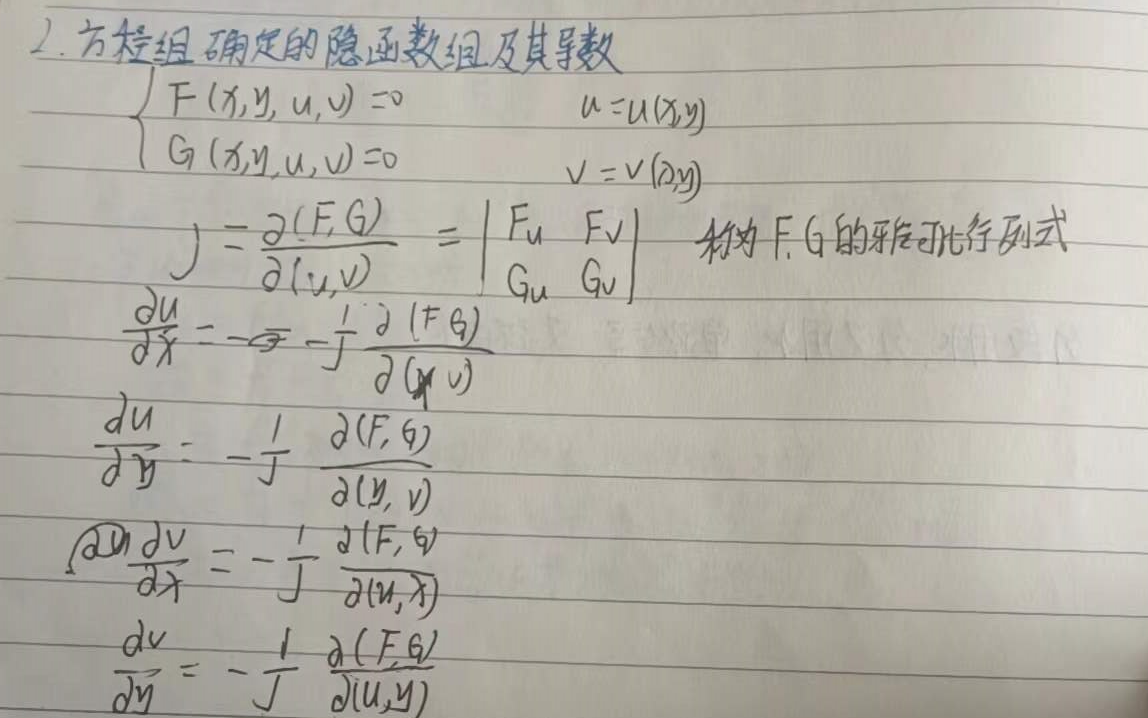 2.方程组确定的隐函数组及其导数
{ F(x,y,u,v)=0 u=u(x,y)
G(x,y,u,v)=0 v=v(x,y)
J = ∂(F,G)/∂(u,v) = | Fu Fv | 称为F,G的雅可比行列式
| Gu Gv |
∂u/∂x = -1/J ∂(F G)/∂(x v)
∂u/∂y = -1/J ∂(F,G)/∂(y,v)
∂v/∂x = -1/J ∂(F,G)/∂(u,x)
∂v/∂y = -1/J ∂(F,G)/∂(u,y)